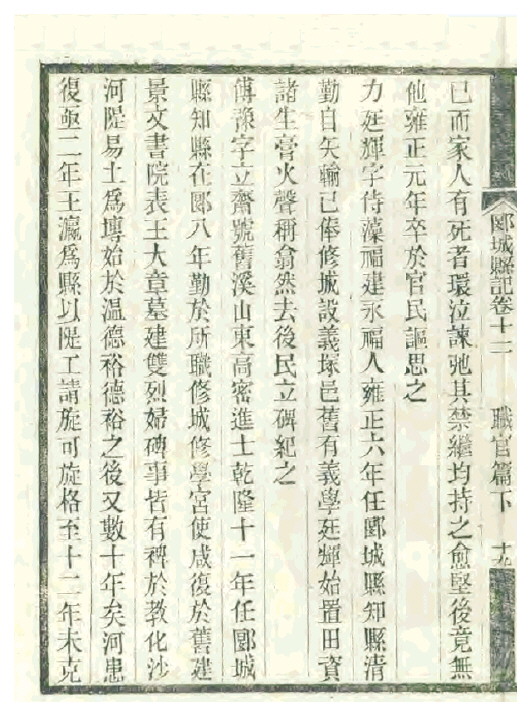 郾城縣記卷十二 職官篇下 十九
已而家人有死者環泣諫弛其禁繼均持之愈堅後竟無
他雍正元年卒於官民謳思之
力廷輝字侍藻福建永福人雍正六年任郾城縣知縣清
勤自矢輸己俸修城設義塚邑舊有義學廷輝始置田資
諸生膏火聲稱翕然去後民立碑紀之
傅豫字立齋號舊溪山東高密進士乾隆十一年任郾城
縣知縣在郾八年勤於所職修城修學宮使咸復於舊建
景文書院表王大章墓建雙烈婦碑事皆有裨於教化沙
河隄易土爲塼始於温德裕德裕之後又數十年矣河患
復亟二年王瀛爲縣以隄工請旋可旋格至十二年未克